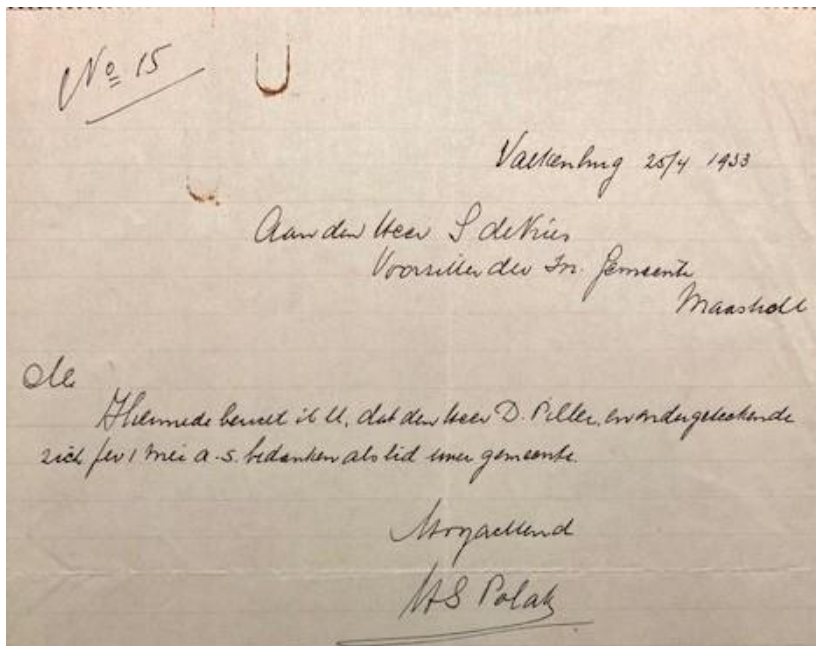 No 15
Valkenburg 25/4 1933
Aan den Heer S de Vries
Voorzitter der Isr. Gemeente
Maastricht
M
Hiermede bericht ik U, dat den Heer D. Piller, en ondergeteekende
zich per 1 Mei a.s. bedanken als lid uwer gemeente.
Hoogachtend
HS Polak